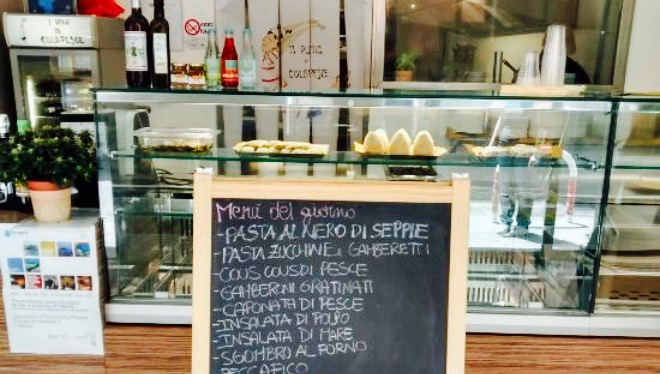 I VINI
DI
COLAPESCE
A PUTIA
DI
COLAPESCE
Menú del giorno
-PASTA AL NERO DI SEPPIE
-PASTA ZUCCHINE e GAMBERETTI
-COUS COUS DI PESCE
-GAMBERONI GRATINATI
-CAPONATA DI PESCE
-INSALATA DI POLPO
-INSALATA DI MARE
-SGOMBRO AL FORNO
BECCAFICO